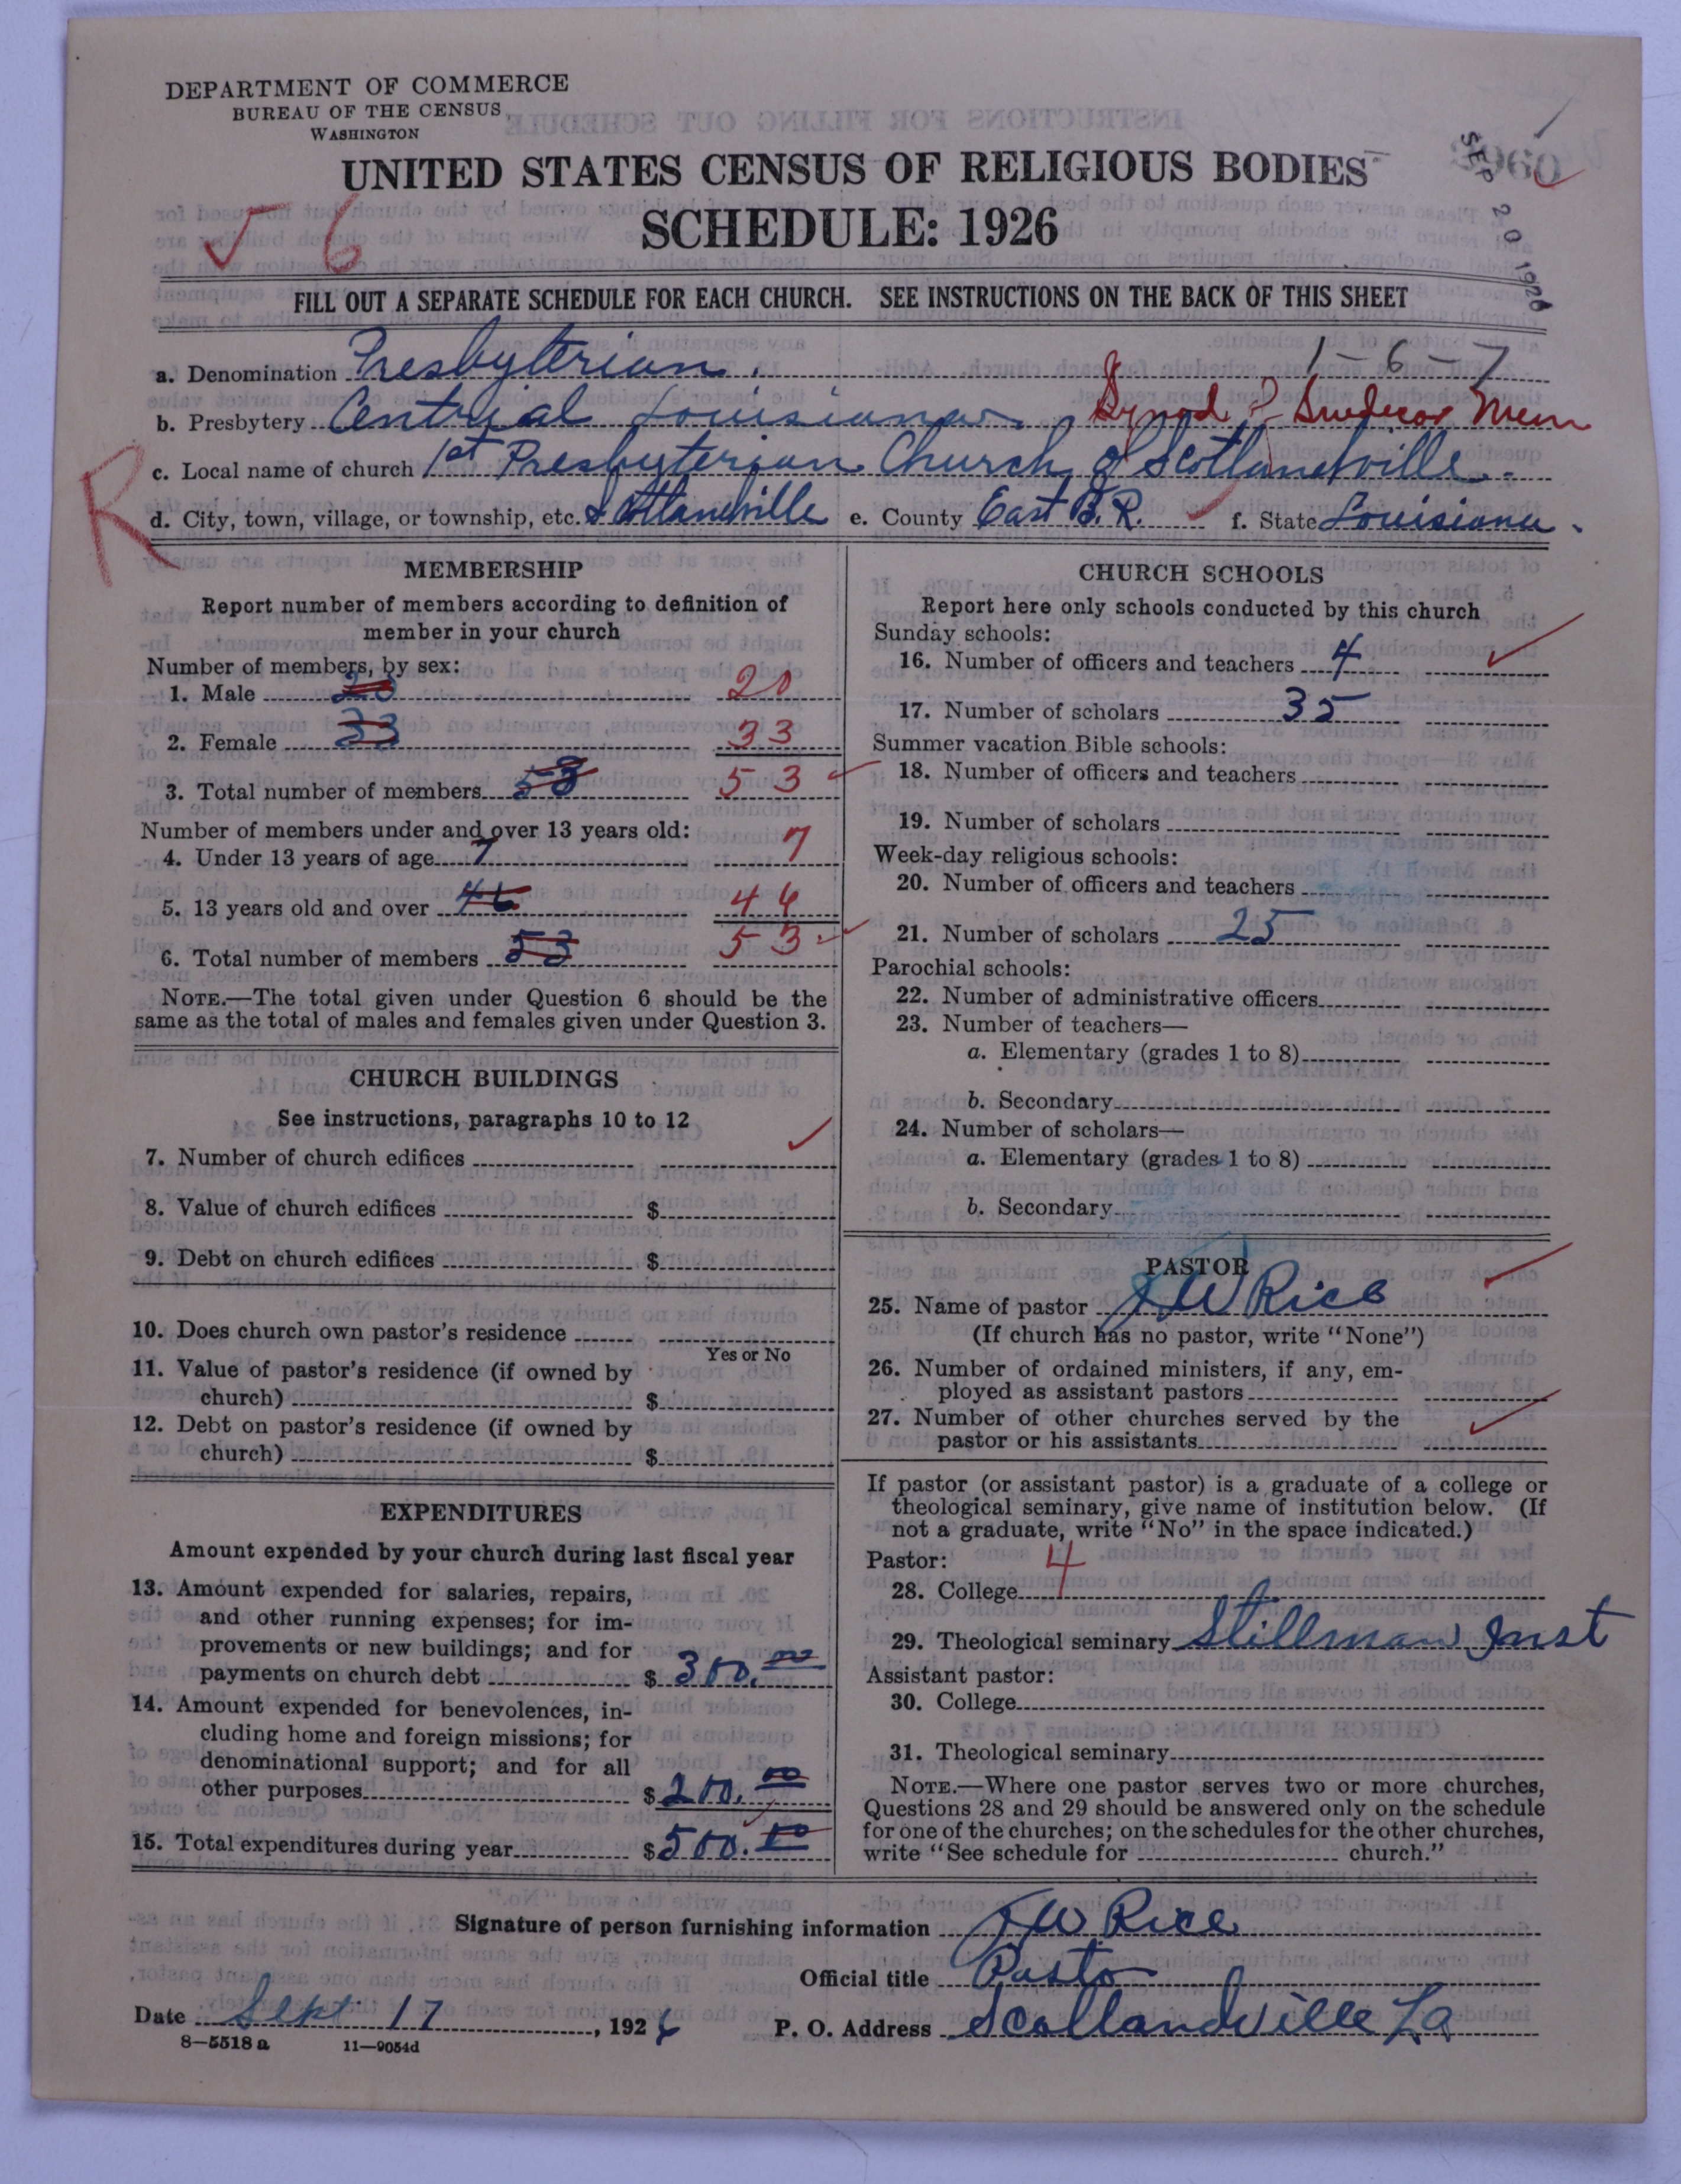 DEPARTMENT OF COMMERCE
BUREAU OF THE CENSUS
WASHINGTON
UNITED STATES CENSUS OF RELIGIOUS BODIES
SCHEDULE: 1926
SEP 20 1926
✓ 6
FILL OUT A SEPARATE SCHEDULE FOR EACH CHURCH. SEE INSTRUCTIONS ON THE BACK OF THIS SHEET
1-6-7
a. Denomination Presbyterian.
b. Presbytery Centrial Louisiana. Synod of Snedecor Mem
c. Local name of church 1st Presbyterian Church of Scotlandville.
R
d. City, town, village, or township, etc. Scotlandville e. County East B.R. f. State Louisiana.
MEMBERSHIP
Report number of members according to definition of
member in your church
Number of members, by sex:
1. Male 20 20
2. Female 33 33
3. Total number of members 53 53
Number of members under and over 13 years old:
4. Under 13 years of age 7 7
5. 13 years old and over 46 46
6. Total number of members 53 53
NOTE.—The total given under Question 6 should be the
same as the total of males and females given under Question 3.
CHURCH BUILDINGS
See instructions, paragraphs 10 to 12
7. Number of church edifices
8. Value of church edifices $
9. Debt on church edifices $
10. Does church own pastor's residence
Yes or No
11. Value of pastor's residence (if owned by
church) $
12. Debt on pastor's residence (if owned by
church) $
EXPENDITURES
Amount expended by your church during last fiscal year
13. Amount expended for salaries, repairs,
and other running expenses; for im-
provements or new buildings; and for
payments on church debt $ 300.00
14. Amount expended for benevolences, in-
cluding home and foreign missions; for
denominational support; and for all
other purposes $ 200.00
15. Total expenditures during year $ 500.00
CHURCH SCHOOLS
Report here only schools conducted by this church
Sunday schools:
16. Number of officers and teachers 4
17. Number of scholars 35
Summer vacation Bible schools:
18. Number of officers and teachers
19. Number of scholars
Week-day religious schools:
20. Number of officers and teachers
21. Number of scholars 25
Parochial schools:
22. Number of administrative officers
23. Number of teachers—
a. Elementary (grades 1 to 8)
b. Secondary
24. Number of scholars—
a. Elementary (grades 1 to 8)
b. Secondary
PASTOR
25. Name of pastor J W Rice
(If church has no pastor, write "None")
26. Number of ordained ministers, if any, em-
ployed as assistant pastors
27. Number of other churches served by the
pastor or his assistants
If pastor (or assistant pastor) is a graduate of a college or
theological seminary, give name of institution below. (If
not a graduate, write "No" in the space indicated.)
Pastor: 4
28. College
29. Theological seminary Stillman Inst
Assistant pastor:
30. College
31. Theological seminary
NOTE.—Where one pastor serves two or more churches,
Questions 28 and 29 should be answered only on the schedule
for one of the churches; on the schedules for the other churches,
write "See schedule for church."
Signature of person furnishing information J W Rice
Official title Pasto
Date Sept 17, 1926 P. O. Address Scotlandville La
8—5518 a 11—9054d